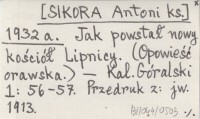 [SIKORA Antoni ks.]
1932 a. Jak powstał nowy
kościół Lipnicy. (Opowieść
orawska.) — Kal. Góralski
1: 56-57. Przedruk z: jw.
1913.